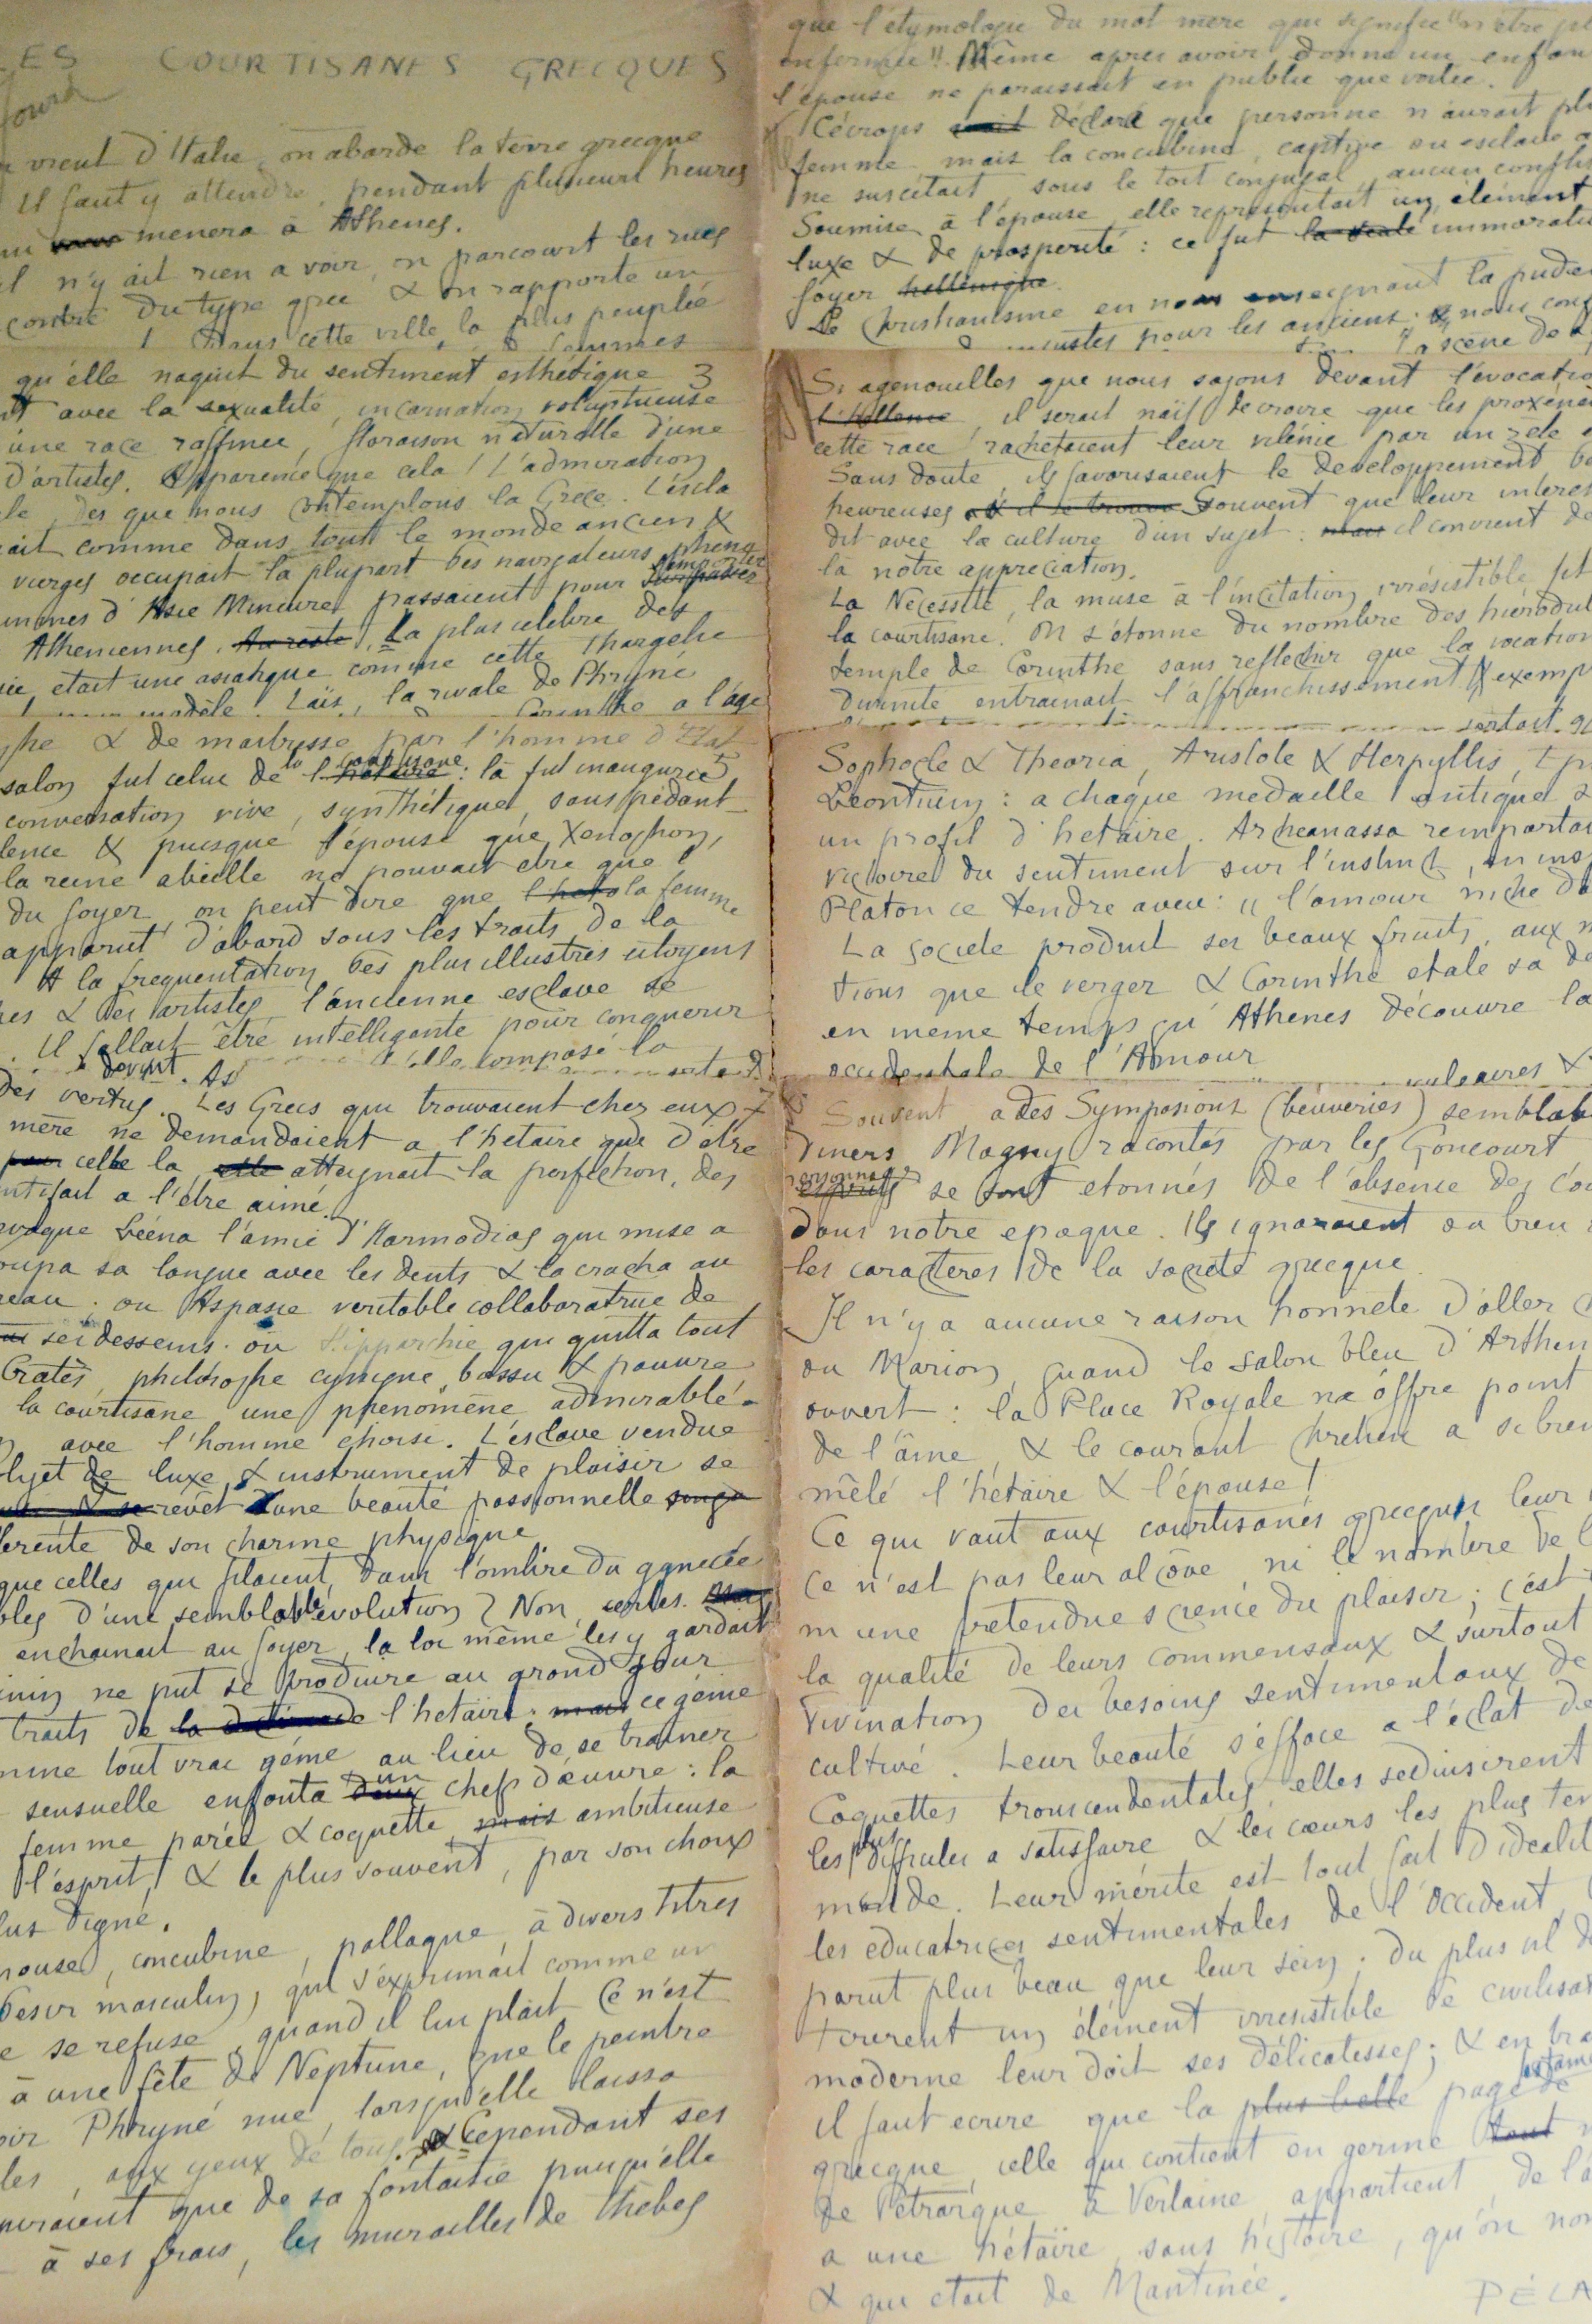 LES COURTISANES GRECQUES
vient d'Italie, on aborde la terre grecque
Il faut y attendre, pendant plusieurs heures
menera à Athenes.
il n'y ait rien a voir, on parcourt les rues
contre du type grec & on rapporte un
Dans cette ville, la plus peuplée
femmes
qu'elle naquit du sentiment esthétique 3
avec la sexualité, incarnation voluptueuse
d'une race raffinée, floraison naturelle d'une
d'artistes. Apparence que cela! L'admiration
Dès que nous contemplons la Grèce. L'escla
ait comme dans tout le monde ancien &
vierges occupait la plupart des navigateurs
Asie Mineure passaient pour l'emporter surpasser
Atheniennes. Au reste, La plus celebre des
etait une asiatique comme cette Thargelie
modèle. Laïs, la rivale de Phryné
Corinthe a l'age
& de maitresse par l'homme d'Etat
salon fut celui de la courtisane : là fut inauguré
conversation vive, synthétique, sans pédant
& puisque l'épouse que Xenophon,
la reine abeille ne pouvait etre que
du foyer, on peut dire que la femme
apparut d'abord sous les traits de la
A la frequentation des plus illustres citoyens
& des artistes, l'ancienne esclave se
Il fallait être intelligente pour conquerir
devint
des vertus. Les Grecs qui trouvaient chez eux 7
mère ne demandaient a l'hetaire que d'être
pour celle la elle atteignait la perfection, des
a l'être aimé.
Lééna l'amie d'Harmodios qui mise a
coupa sa langue avec les dents & la cracha au
ou Aspasie veritable collaboratrice de
ses desseins. ou Hipparchie qui quitta tout
Cratès, philosophe cynique, bossu & pauvre
la courtisane une phenomène admirable.
avec l'homme choisi. L'esclave vendue
objet de luxe & instrument de plaisir se
revet d'une beauté passionnelle
de son charme physique
que celles qui filaient, dans l'ombre du gynécée
d'une semblable evolution? Non, certes.
enchainait au foyer, la loi même les y gardait
ne put se produire au grand jour
traits de l'hetaire. mais ce génie
comme tout vrai génie au lieu de se trainer
sensuelle enfanta deux un chef d'œuvre : la
femme parée & coquette, mais ambitieuse
l'esprit, & le plus souvent, par son choix
plus digne.
epouse, concubine, pallaque, à divers titres
desir masculin, qui s'exprimait comme un
se refuse, quand il lui plait. Ce n'est
à une fête de Neptune, que le peintre
voir Phryné nue, lorsqu'elle laissa
aux yeux de tous. & Cependant ses
que de sa fantaisie puisqu'elle
à ses frais, les murailles de Thebes
que l'étymologie du mot mere qui signifie "n'etre plus
enfermée". Même apres avoir donné un enfant
l'épouse ne paraissait en public que voilée.
Cécrops avait déclaré que personne n'aurait plus
femme mais la concubine, captive ou esclave
ne suscitait, sous le toit conjugal, aucun conflit
Soumise à l'épouse, elle représentait un élément
luxe & de prosperité : ce fut la seule immoralité
foyer hellénique.
Le Christianisme en nous enseignant la pudeur
injustes pour les anciens. & nous
la scène de
Si agenouilles que nous soyons devant l'évocation
il serait naïf de croire que les proxénètes
cette race rachetaient leur vilénie par un zele
Sans doute, ils favorisaient le developpement
heureuses Souvent que leur interet
dit avec la culture d'un sujet : mais il convient de
là notre appreciation.
La Nécessité, la muse à l'incitation irrésistible fit
la courtisane. On s'étonne du nombre des hiérodules
temple de Corinthe sans reflechir que la vocation
Divinité entrainait l'affranchissement
Sophocle & Theoria, Aristote & Herpyllis,
Leontium : a chaque medaille antique
un profil d'hetaire. Archeanassa remportait
victoire du sentiment sur l'instinct,
Platon ce tendre aveu : "l'amour niche
La societe produit ses beaux fruits, aux
tions que le verger & Corinthe etale sa
en meme temps qu'Athenes découvre la
occidentale de l'Amour
vulgaires &
Souvent a des Symposions (beuveries) semblables
diners Magny racontés par les Goncourt
personnages esprits se sont etonnés de l'absence des
dans notre epoque. Ils ignoraient ou bien
les caracteres de la société grecque.
Il n'y a aucune raison honnete d'aller
ou Marion, quand le salon bleu d'Arthen
ouvert : la Place Royale ne offre point
de l'âme, & le courant chretien a si bien
mêlé l'hétaire & l'épouse!
Ce qui vaut aux courtisanes grecques leur
ce n'est pas leur alcôve ni le nombre de
ni une pretendue science du plaisir; c'est
la qualité de leurs commensaux & surtout
divination des besoins sentimentaux de
cultivé. Leur beauté s'efface a l'éclat de
Coquettes transcendentales, elles seduisirent
les plus difficiles a satisfaire & les cœurs les plus
monde. Leur mérite est tout fait d'idealité
les educatrices sentimentales de l'Occident,
parut plus beau que leur sein. Du plus vil
tirerent un élément irresistible de civilisation
moderne leur doit ses délicatesses; & en
il faut ecrire que la plus belle page de
grecque, celle qui contient en germe tout
de Petrarque à Verlaine appartient, de
a une hétaïre, sans histoire, qu'on nom
& qui etait de Mantinée.
PÉLA